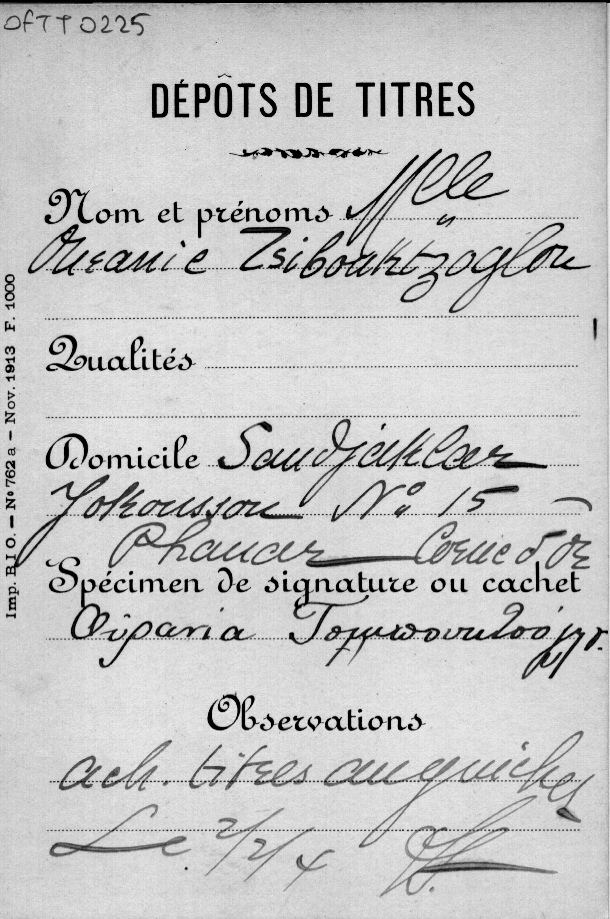 OFTT0225
DÉPÔTS DE TITRES
Nom et prénoms Mlle
Ouranie Tsibouktzoglou
Qualités
Domicile Sandjaklar
Yokoussou No 15
Phanar Corne d'Or
Spécimen de signature ou cachet
Οὐρανία
Observations
ach. titres au guichet
Le 2/2/4
Imp. B I O. — No 762 a — Nov. 1913 F. 1000